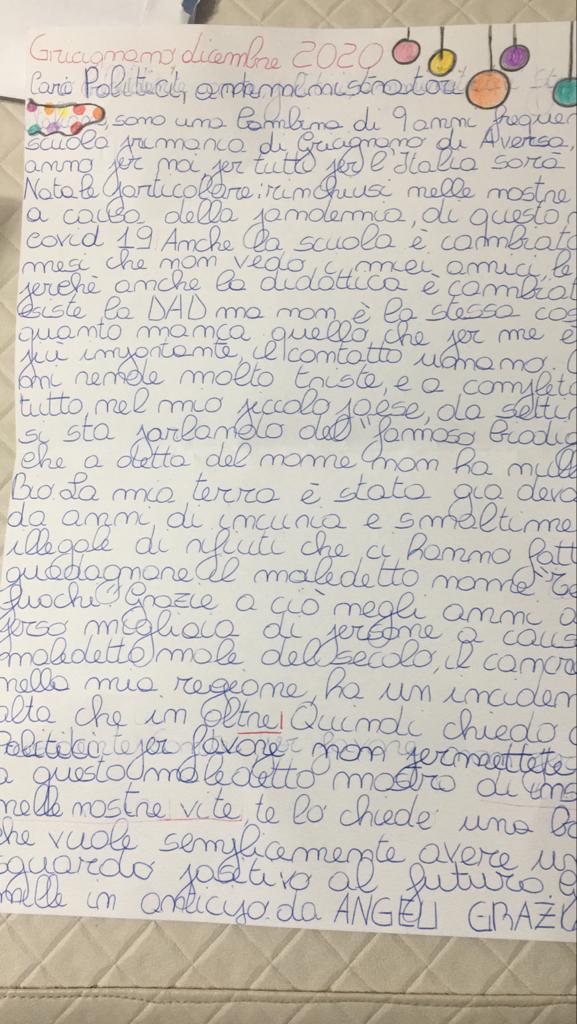 Gricignano, dicembre 2020
Cari Politici, amministratori
, sono una bambina di 9 anni frequen
scuola primaria di Gricignano di Aversa,
anno per noi per tutto per l'Italia sarà
Natale particolare: rinchiusi nelle nostre
a causa della pandemia, di questo
covid 19 Anche la scuola è cambiata
mesi che non vedo i miei amici, le
perchè anche la didattica è cambiat
Esiste la DAD ma non è la stessa cos
quanto manca quello che per me è
più importante, il contatto umano.
mi rende molto triste, e a completa
tutto, nel mio piccolo paese, da sette
si sta parlando del "famoso Biodig
che a detta del nome non ha null
Bio. La mia terra è stata già deva
da anni di incuria e smaltime
illegale di rifiuti che ci hanno fatt
guadagnare il maledetto nome "Te
fuochi" Grazie a ciò negli anni a
perso migliaia di persone a caus
maledetto male del secolo, il cancro
nella mia regione, ha un inciden
alta che in oltre! Quindi chiedo
Politici per favore non permettete
a questo maledetto mostro di
nelle nostre vite, te lo chiede una ba
che vuole semplicemente avere un
sguardo positivo al futuro. G
mille in anticipo. da ANGELI GRAZI